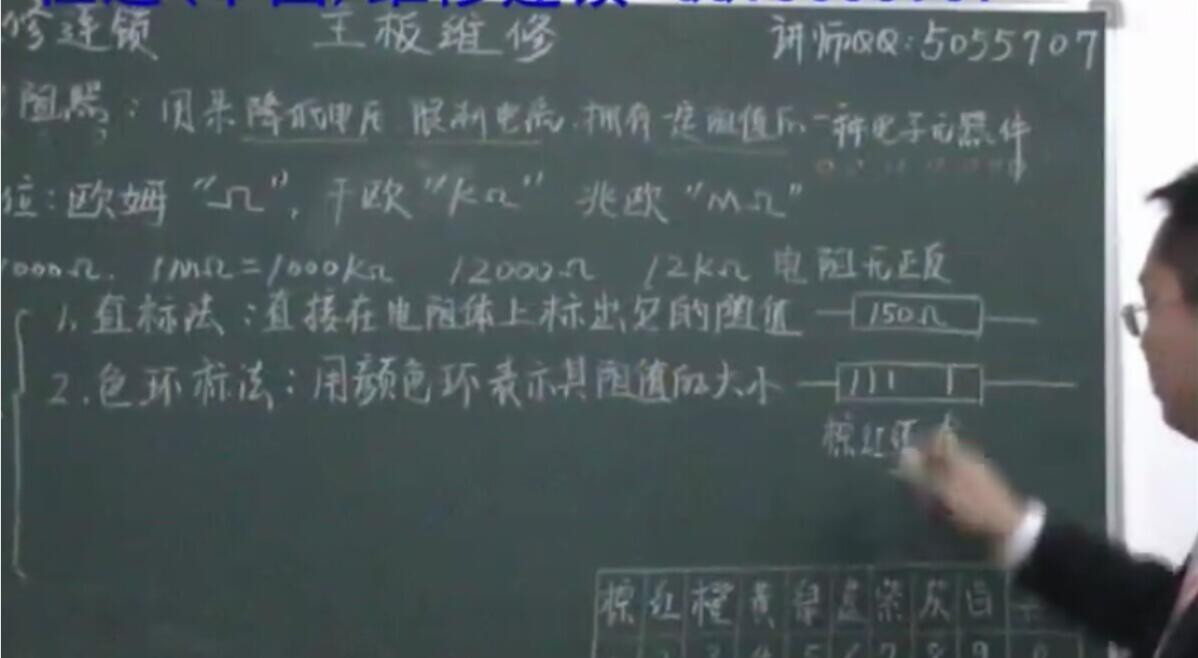 修连锁 主板维修 讲师QQ:5055707
阻器:用来降低电压 限制电流.拥有一定阻值的一种电子元器件
位:欧姆“Ω”,千欧“KΩ” 兆欧“MΩ”
000Ω. 1MΩ=1000KΩ 12000Ω 12KΩ 电阻无正反
1.直标法:直接在电阻体上标出它的阻值 150Ω
2.色环标法:用颜色环表示其阻值的大小
棕红
棕 红 橙 黄 绿 蓝 紫 灰 白
2 3 4 5 6 7 8 9